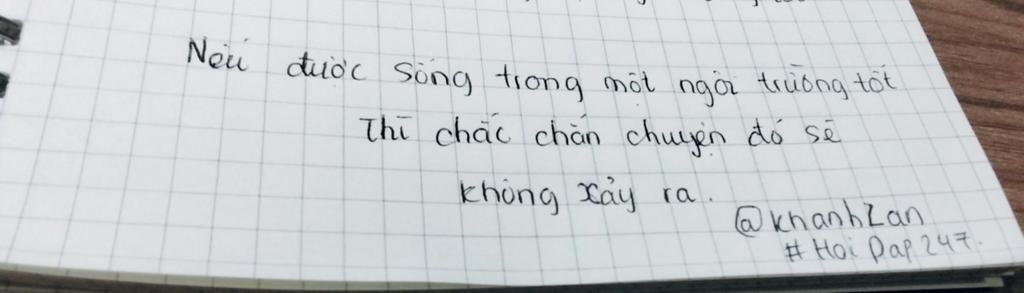 Nếu được sống trong một ngôi trường tốt
Thì chắc chắn chuyện đó sẽ
không xảy ra.
@khanhLan
# Hoi Dap 247.